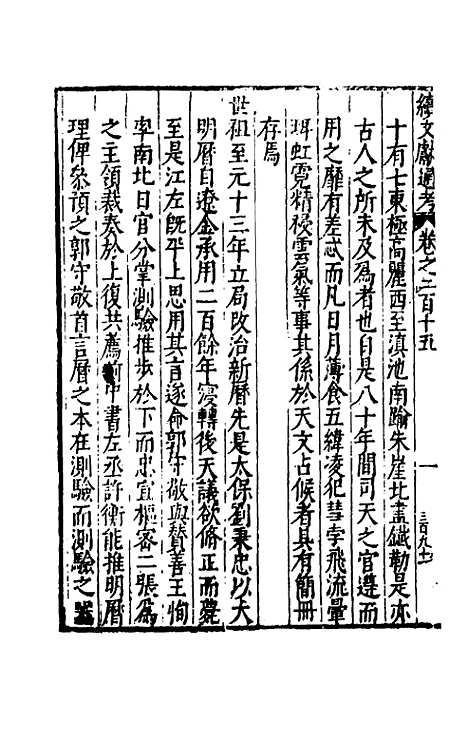 續文獻通考 卷之二百十五 一
十有七東極高麗西至滇池南踰朱崖北盡鐵勒是亦
古人之所未及爲者也自是八十年間司天之官遵而
用之靡有差忒而凡日月薄食五緯凌犯彗孛飛流暈
珥虹霓精祲雲氣等事其係於天文占候者具有簡冊
存焉
世祖至元十三年立局改治新曆先是太保劉秉忠以大
明曆自遼金承用二百餘年寖轉後天議欲脩正而薨
至是江左既平上思用其言遂命郭守敬與贊善王恂
率南北日官分掌測驗推步於下而忠宜樞密二張爲
之主領裁奏於上復共薦前中書左丞許衡能推明曆
理俾叅預之郭守敬首言曆之本在測驗而測驗之器